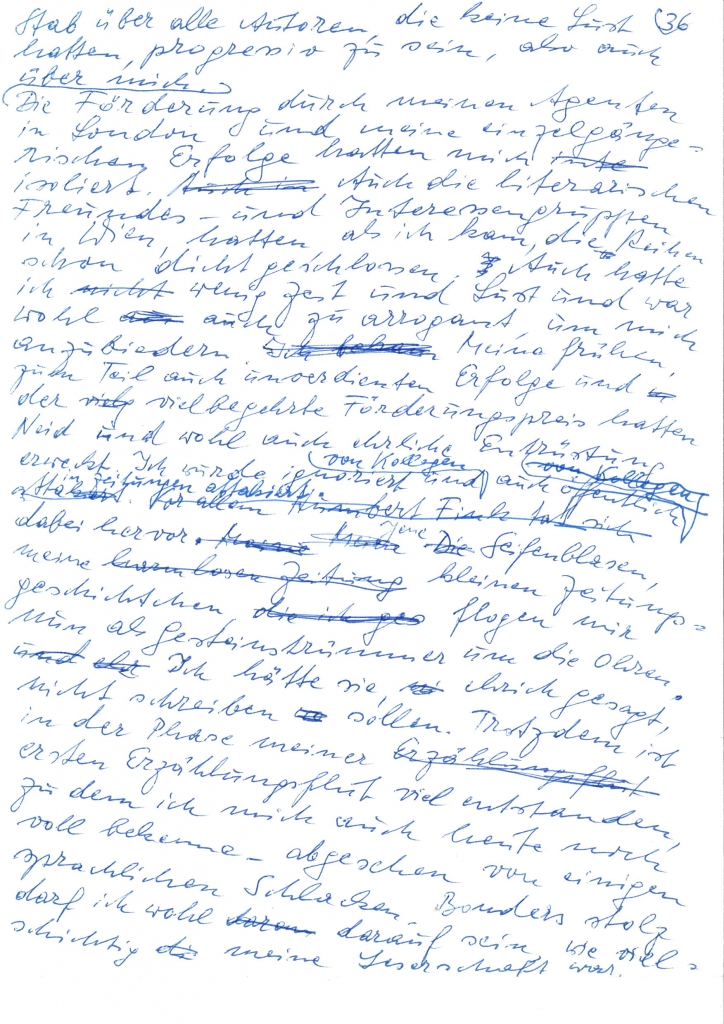 Stab über alle Autoren, die keine Lust (36
hatten, progressiv zu sein, also auch
über mich.
Die Förderung durch meinen Agenten
in London und meine einzelgänge=
rischen Erfolge hatten mich
isoliert. Auch in Auch die literarischen
Freundes- und Interessengruppen
in Wien, hatten als ich kam, die Reihen
schon dicht geschlossen. Auch hatte
ich nicht wenig Zeit und Lust und war
wohl auch zu arrogant, um mich
anzubiedern. Ich bekam Meine frühen,
zum Teil auch unverdienten Erfolge und
der viel vielbegehrte Förderungspreis hatten
Neid und wohl auch ehrliche Entrüstung
erweckt. Ich wurde ignoriert und (von Kollegen) auch öffentlich (von Kollegen)
in Zeitungen attakiert.
attakiert. Vor allem Humbert Fink tat sich
dabei hervor. Meine Jene Die Seifenblasen,
meine harmlosen Zeitung kleinen Zeitungs=
geschichtchen die ich flogen mir
nun als Gesteinstrümmer um die Ohren.
und Ich hätte sie, ehrlich gesagt,
nicht schreiben sollen. Trotzdem ist
in der Phase meiner Erzählungsflut
ersten Erzählungsflut viel entstanden,
zu dem ich mich auch heute noch
voll bekenne - abgesehen von einigen
sprachlichen Schlacken. Bonders stolz
darf ich wohl daran darauf sein, wie viel=
schichtig die meine Leserschaft war.